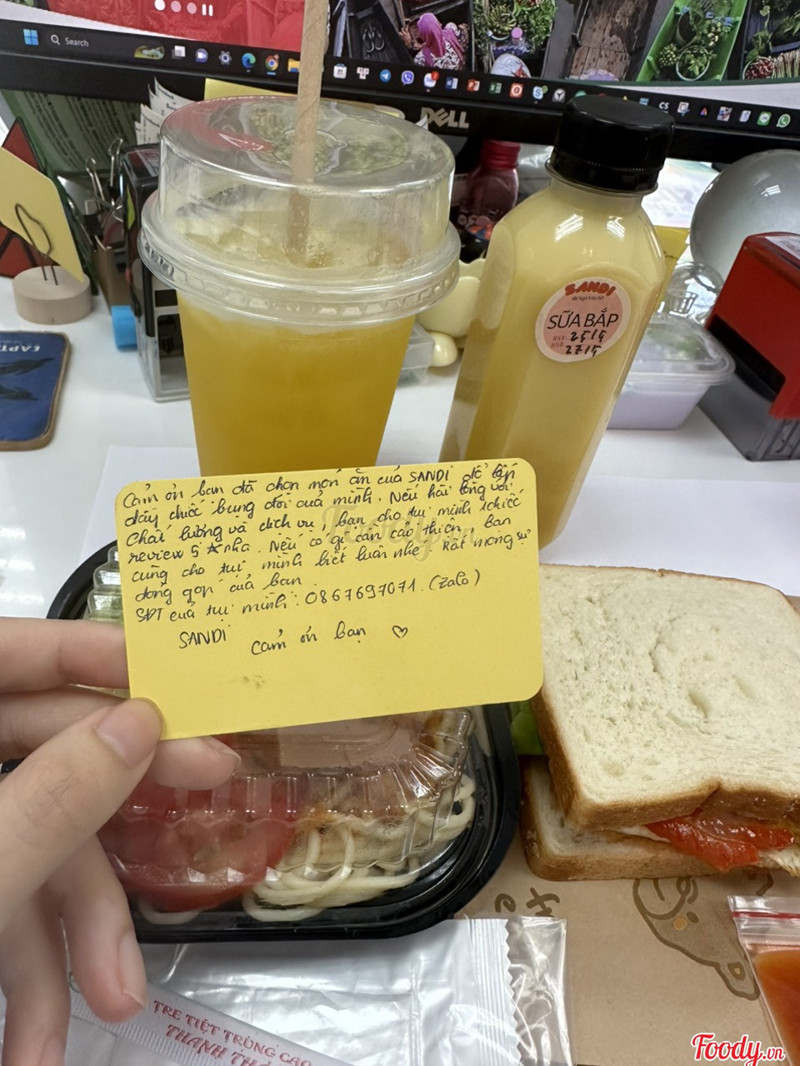 Search
DELL
SANDI
SỮA BẮP
NSX 25/5
HSD 27/5
Cảm ơn bạn đã chọn món ăn của SANDI để lấp
đầy chiếc bụng đói của mình. Nếu hài lòng với
chất lượng và dịch vụ, bạn cho tụi mình 1 chiếc
review 5 ★ nha. Nếu có gì cần cải thiện, bạn
cũng cho tụi mình biết luôn nhé. Rất mong sự
đóng góp của bạn
SĐT của tụi mình: 0867697071. (Zalo)
SANDI cảm ơn bạn ♡
Foody.vn
TRE TIỆT TRÙNG CAO
THANH
Foody.vn